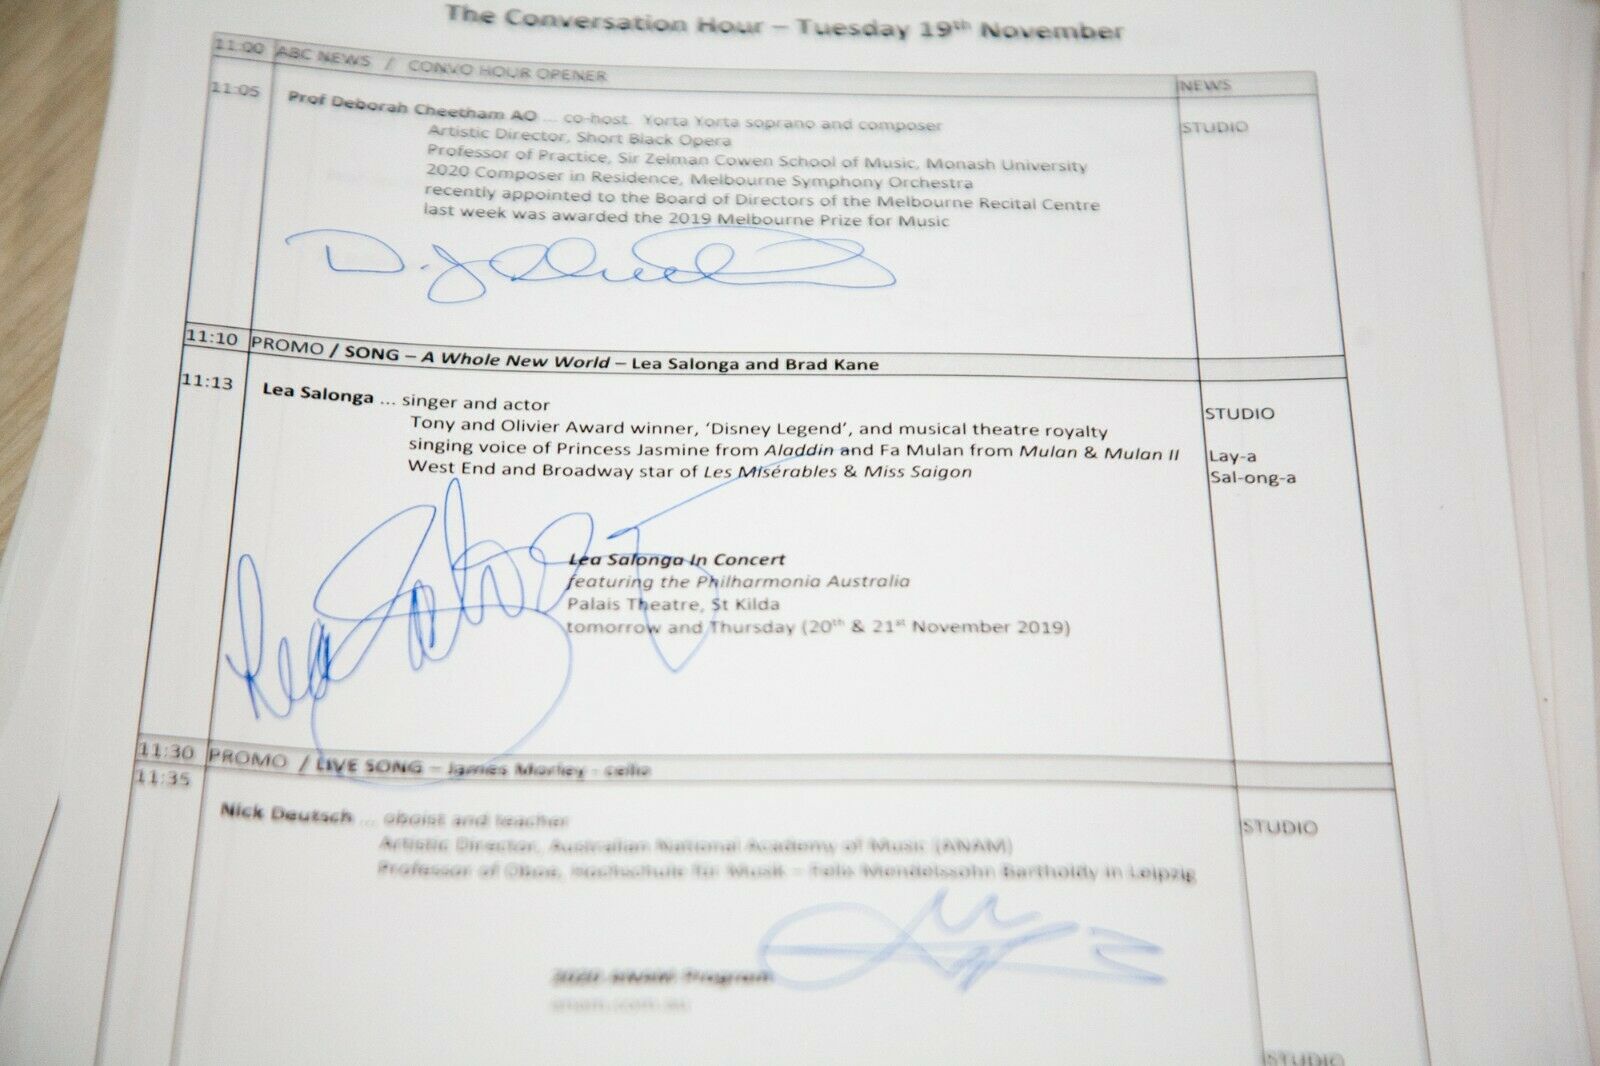 The Conversation Hour – Tuesday 19th November
11:00 ABC NEWS / CONVO HOUR OPENER NEWS
11:05 Prof Deborah Cheetham AO ... co-host. Yorta Yorta soprano and composer STUDIO
Artistic Director, Short Black Opera
Professor of Practice, Sir Zelman Cowen School of Music, Monash University
2020 Composer in Residence, Melbourne Symphony Orchestra
recently appointed to the Board of Directors of the Melbourne Recital Centre
last week was awarded the 2019 Melbourne Prize for Music
11:10 PROMO / SONG – A Whole New World – Lea Salonga and Brad Kane
11:13 Lea Salonga ... singer and actor STUDIO
Tony and Olivier Award winner, ‘Disney Legend’, and musical theatre royalty
singing voice of Princess Jasmine from Aladdin and Fa Mulan from Mulan & Mulan II Lay-a
West End and Broadway star of Les Misérables & Miss Saigon Sal-ong-a
Lea Salonga
Lea Salonga In Concert
featuring the Philharmonia Australia
Palais Theatre, St Kilda
tomorrow and Thursday (20th & 21st November 2019)
11:30 PROMO / LIVE SONG – James Morley - cello
11:35
Nick Deutsch ... oboist and teacher STUDIO
Artistic Director, Australian National Academy of Music (ANAM)
Professor of Oboe, Hochschule für Musik – Felix Mendelssohn Bartholdy in Leipzig
2020 ANAM Program
anam.com.au
STUDIO